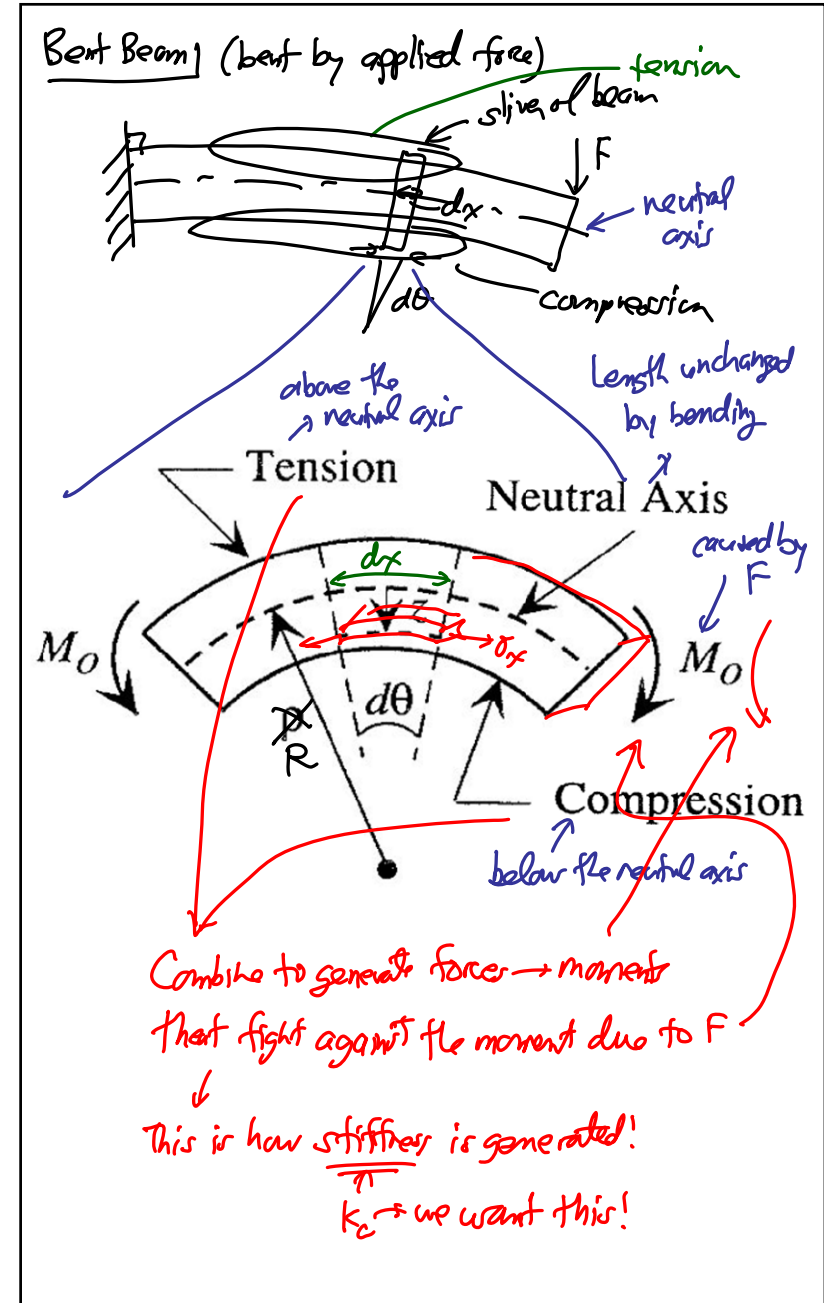 Bent Beam (bent by applied force)
tension
sliver of beam
F
dx
neutral
axis
dθ
compression
above the
neutral axis
Length unchanged
by bending
Tension
Neutral Axis
caused by
F
dx
z
σx
Mo
Mo
dθ
R
Compression
below the neutral axis
Combine to generate forces → moments
that fight against the moment due to F
This is how stiffness is generated!
kc → we want this!